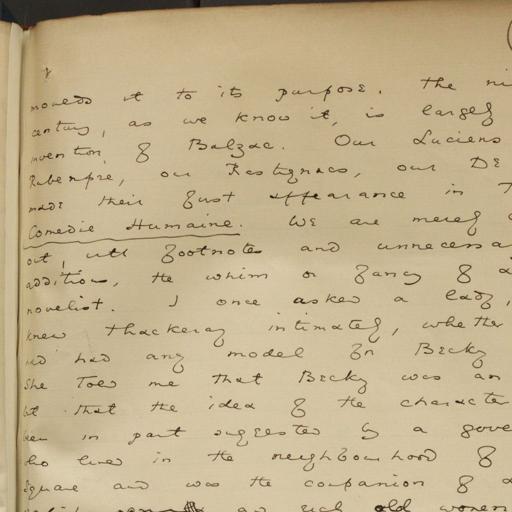 moulds it to its purpose. The ni
century, as we know it, is largely
invention of Balzac. Our Luciens
Rubempre, our Rastignacs, our De
made their first appearance in
Comedie Humaine. We are merely
out, with footnotes and unnecessa
additions, the whim or fancy of a
novelist. I once asked a lady,
knew Thackeray intimately, whether
had had any model for Becky
She told me that Becky was an
but that the idea of the characte
been in part suggested by a gove
who lived in the neighbourhood of
Square and was the companion of a
rich old women